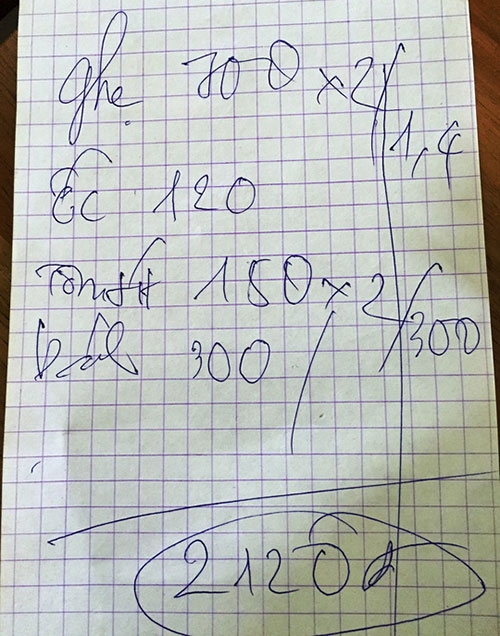 ghẹ 700 x 2 / 1,4
ốc 120
150 x 2 / 300
300
2120đ